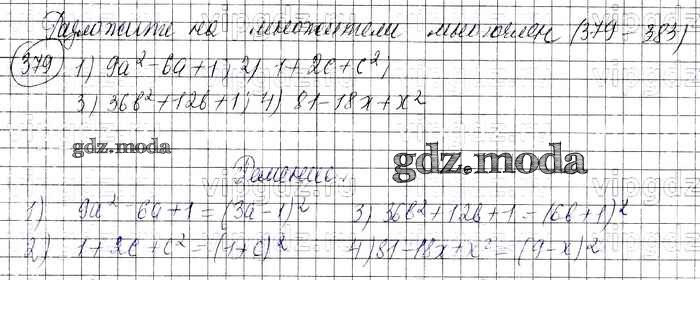 Разложите на множители многочлен (379 - 383)
379 1) 9a² - 6a + 1; 2) 1 + 2c + c²;
3) 36b² + 12b + 1; 4) 81 - 18x + x²
gdz.moda
gdz.moda
Решение.
1) 9a² - 6a + 1 = (3a - 1)² 3) 36b² + 12b + 1 = (6b + 1)²
2) 1 + 2c + c² = (1 + c)² 4) 81 - 18x + x² = (9 - x)²